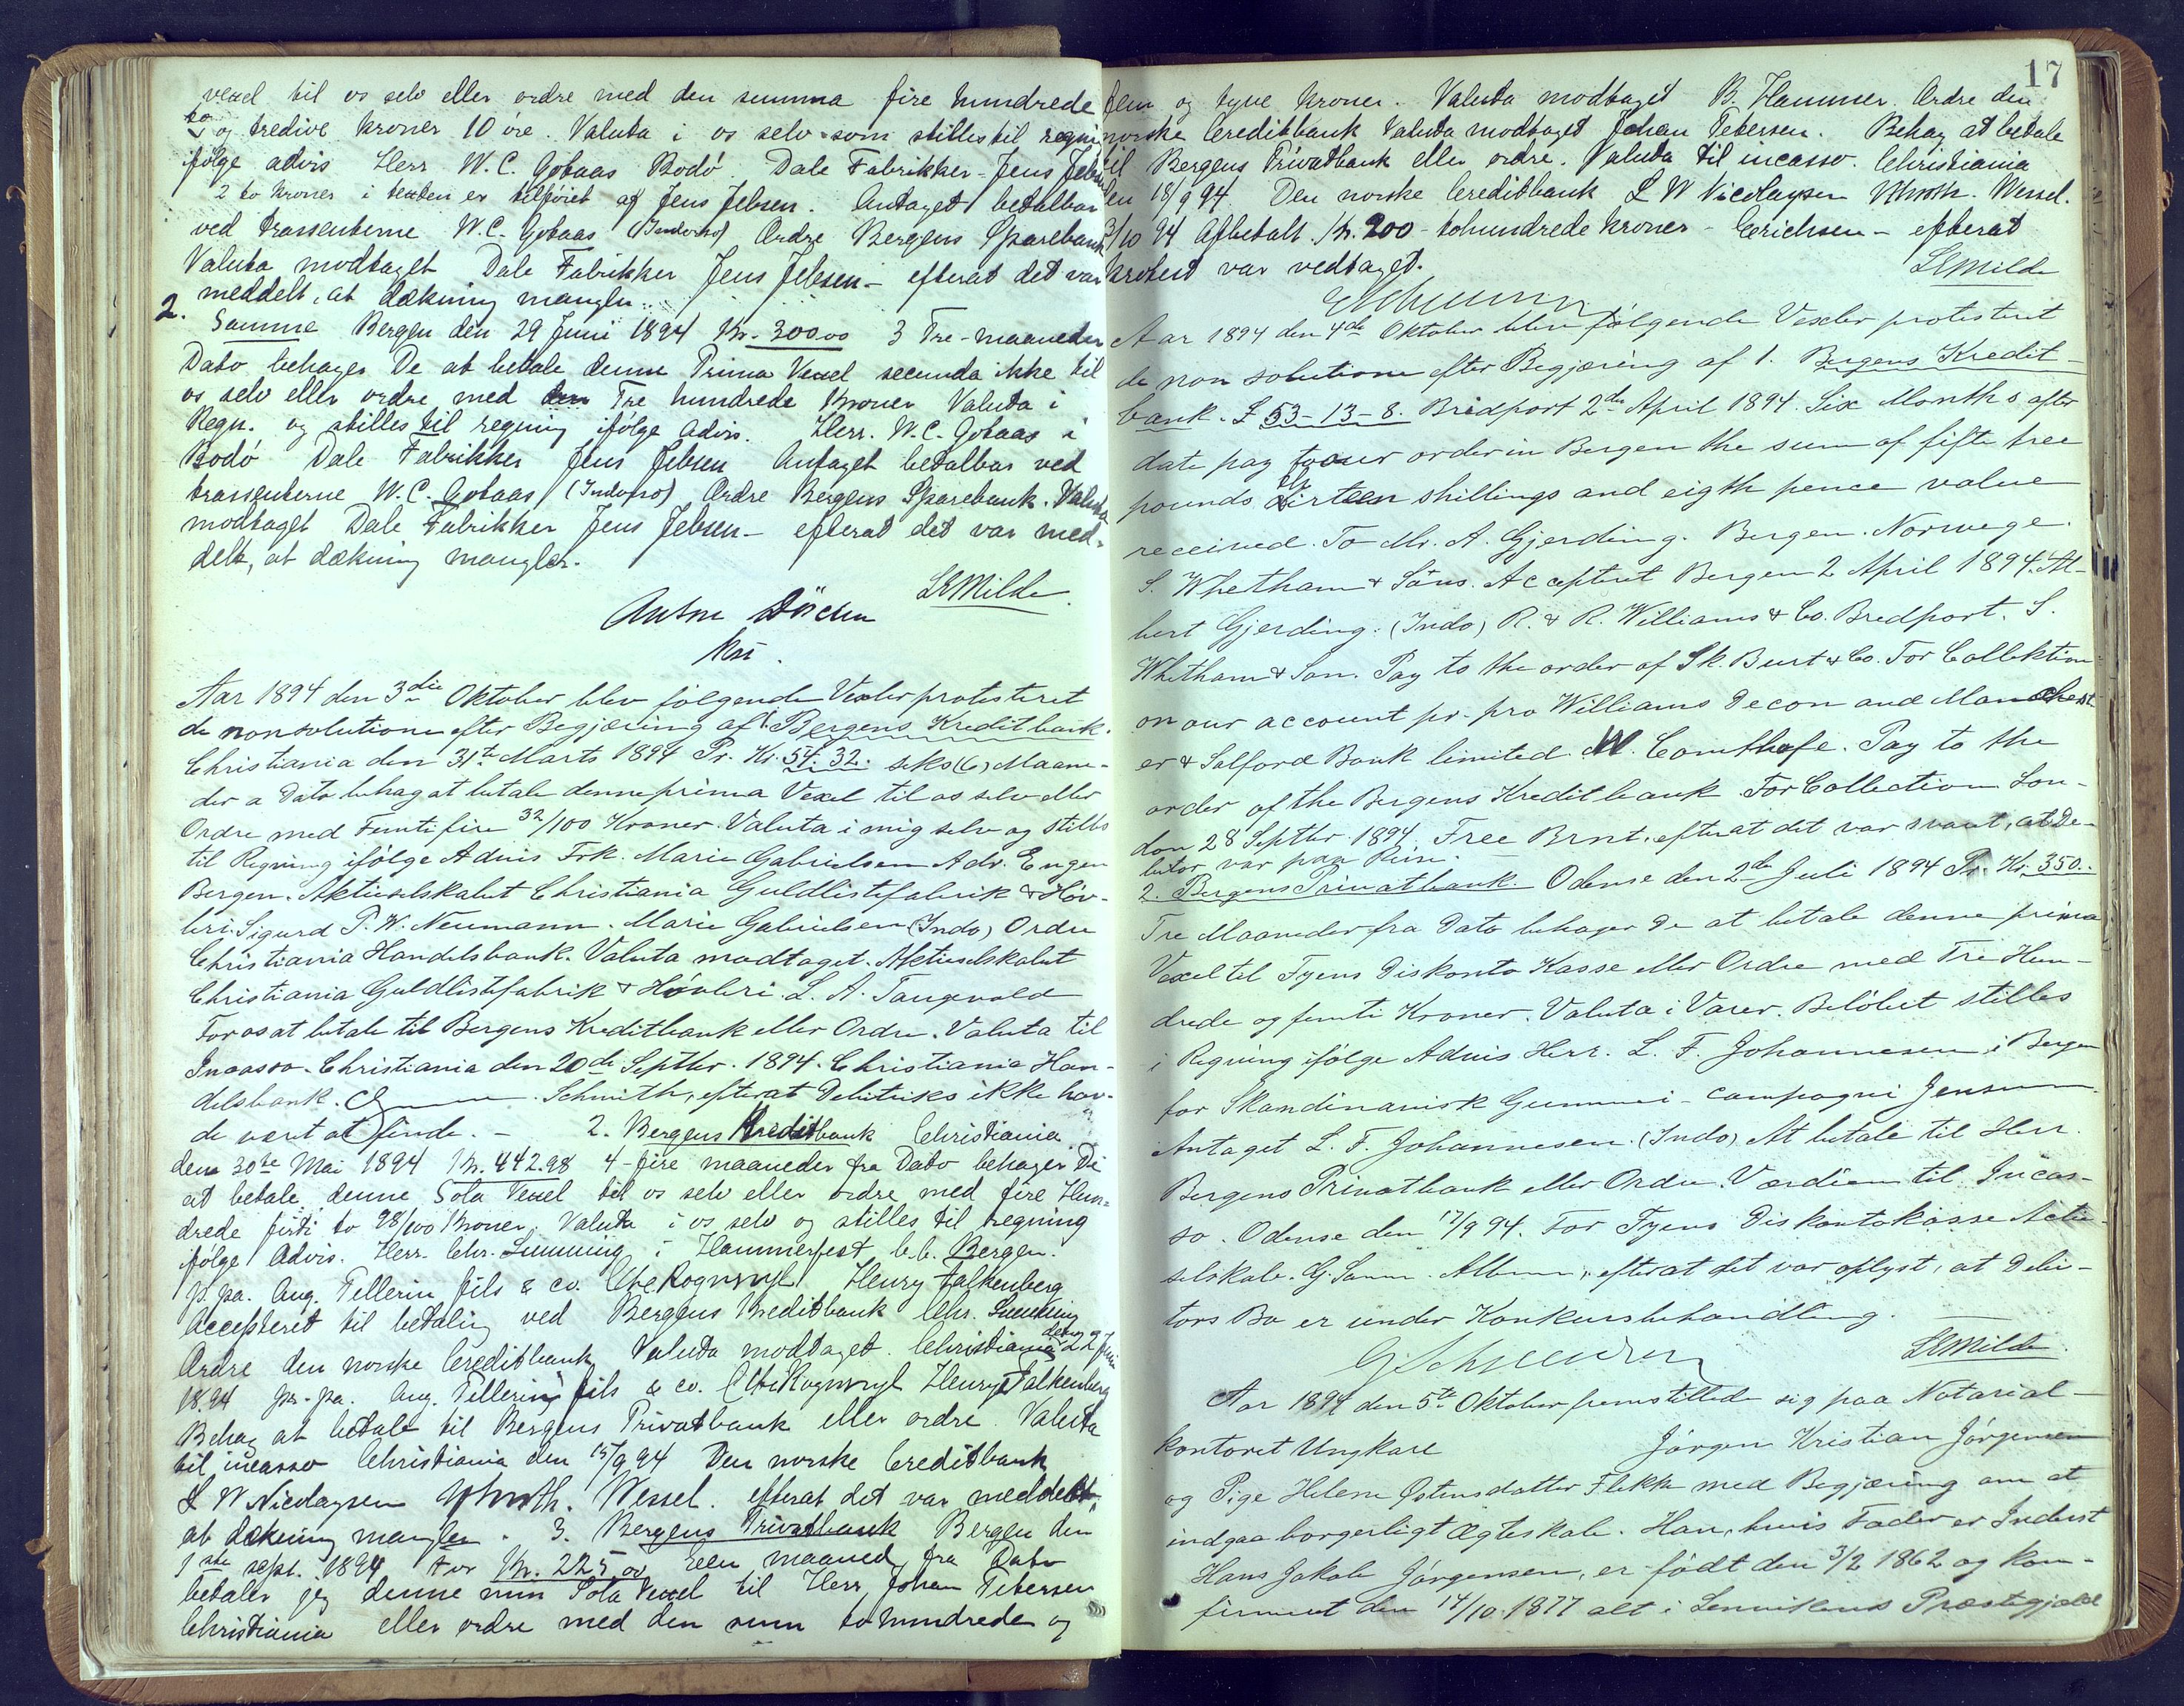 vexel til os selv eller ordre med den summa fire hundrede
to og tredive kroner 10 øre. Valuta i os selv som stilles til regning
ifølge advis Herr W. C. Gotaas Bodø. Dale Fabrikker - Jens Jebsen
2 to kroner i texten er tilføiet af Jens Jebsen. Antaget betalbar
ved trassenterne W. C. Gotaas (Indorso) Ordre Bergens Sparebank
Valuta modtaget Dale Fabrikker Jens Jebsen - efterat det var
meddelt, at dækning mangler.
2. Samme Bergen den 29 Juni 1894 Kr. 300.00 3 Tre-maaneder
Dato behager De at betale denne Prima Vexel secunda ikke til
os selv eller ordre med den Tre hundrede Kroner Valuta i
Regn. og stilles til regning ifølge advis. Herr. W. C. Gotaas i
Bodø Dale Fabrikker Jens Jebsen Antaget betalbar ved
trassenterne W. C. Gotaas (Indorso) Ordre Bergens Sparebank. Valuta
modtaget Dale Fabrikker Jens Jebsen - efterat det var med-
delt, at dækning mangler.
LEMilde
Kst.
Aar 1894 den 3die Oktober blev følgende Vexler protesteret
de non solutione efter Begjæring af 1. Bergens Kreditbank.
Christiania den 31te Marts 1894 Pr. Kr. 54.32. seks (6) Maane-
der a Dato behag at betale denne prima Vexel til os selv eller
Ordre med Femtifire 32/100 Kroner. Valuta i mig selv og stilles
til Regning ifølge Advis Frk. Marie Gabrielsen Adr. Engen
Bergen. Aktieselskabet Christiania Guldlistefabrik & Høv-
leri. Sigurd P. W. Neumann. Marie Gabrielsen (Indo) Ordre
Christiania Handelsbank. Valuta modtaget. Aktieselskabet
Christiania Guldlistefabrik & Høvleri. L. A. Tangvald
For os at betale til Bergens Kreditbank eller Ordre. Valuta til
Incasso. Christiania den 20de Septbr. 1894. Christiania Han-
delsbank. Schmith, efterat Debitriks ikke hav-
de været at finde. - 2. Bergens Kreditbank Christiania
den 30te Mai 1894 Kr. 442.98 4-fire maaneder fra Dato behager De
at betale denne Sola Vexel til os selv eller ordre med fire Hun-
drede firti to 98/100 Kroner. Valuta i os selv og stilles til regning
ifølge Advis. Herr. Chr. Lumming i Hammerfest b.b. Bergen.
p. pa. Aug. Tellerin fils & co. Henry Falkenberg
Accepteret til betaling ved Bergens Kreditbank Chr. Lumming
Ordre den norske Creditbank Valuta modtaget. Christiania den 22 Juni
1894 pr. pa. Aug. Tellerin fils & co. Henry Falkenberg
Behag at betale til Bergens Privatbank eller ordre. Valuta
til incasso Christiania den 15/9 94 Den norske Creditbank
L W Nicolaysen Wessel. efterat det var meddelt,
at dækning mangler. 3. Bergens Privatbank Bergen den
1ste sept. 1894 for Kr. 225.00 Een maaned fra Dato
betaler jeg denne min Sola Vexel til Herr Johan Petersen
Christiania eller ordre med den sum to hundrede og
17
fem og tyve kroner. Valuta modtaget B. Hammer. Ordre den
norske Creditbank Valuta modtaget Johan Petersen. Behag at betale
til Bergens Privatbank eller ordre. Valuta til incasso. Christiania
den 18/9 94. Den norske Creditbank L W Nicolaysen Wessel.
3/10 94 Afbetalt Kr. 200 - tohundrede kroner - Erichsen - efterat
protest var vedtaget.
LEMilde
Aar 1894 den 4de Oktober blev følgende Vexler protesteret
de non solutione efter Begjæring af 1. Bergens Kredit-
bank. £ 53-13-8. Bridport 2de April 1894. Six Months after
date pay to our order in Bergen the sum of fifte tree
pounds thirteen shillings and eigth pence value
received. To Mr. A. Gjerding. Bergen. Norwege.
S. Whetham & Sons. Accepteret Bergen 2 April 1894. Al-
bert Gjerding. (Indo) R. & R. Williams & Co. Bredport. S.
Whetham & Son. Pay to the order of Sk. Burt & Co. For Collektion
on our account pr. pro Williams Decon and Manchest-
er & Salford Bank limited. Pay to the
order of the Bergens Kreditbank. For Collection Lon-
don 28 Septbr. 1894. Free Brnt. efterat det var svaret, at De-
bitor var paa Reise.
2. Bergens Privatbank. Odense den 2de Juli 1894 Pr. Kr. 350..
Tre Maaneder fra Dato behager De at betale denne prima
Vexel til Fyens Diskonto Kasse eller Ordre med Tre Hun-
drede og femti Kroner. Valuta i Varer. Beløbet stilles
i Regning ifølge Advis Herr. L. F. Johannesen i Bergen
for Skandinavisk Gummi-Compagni Jensen
Antaget L. F. Johannesen. (Indo) At betale til Herr.
Bergens Privatbank eller Ordre. Værdien til Incas-
so. Odense den 17/9 94. For Fyens Diskontokasse Aktie-
selskab. G. efterat det var oplyst, at Debi-
tors Bo er under Konkursbehandling.
LEMilde
Aar 1894 den 5te Oktober fremstillede sig paa Notarial-
kontoret Ungkarl Jørgen Kristian Jørgensen
og Pige Helene Østensdatter Flekke med Begjæring om at
indgaa borgerligt Ægteskab. Han, hvis Fader er Inderst
Hans Jakob Jørgensen, er født den 3/2 1862 og kon-
firmeret den 14/10 1877 alt i Lenvikens Præstegjæld